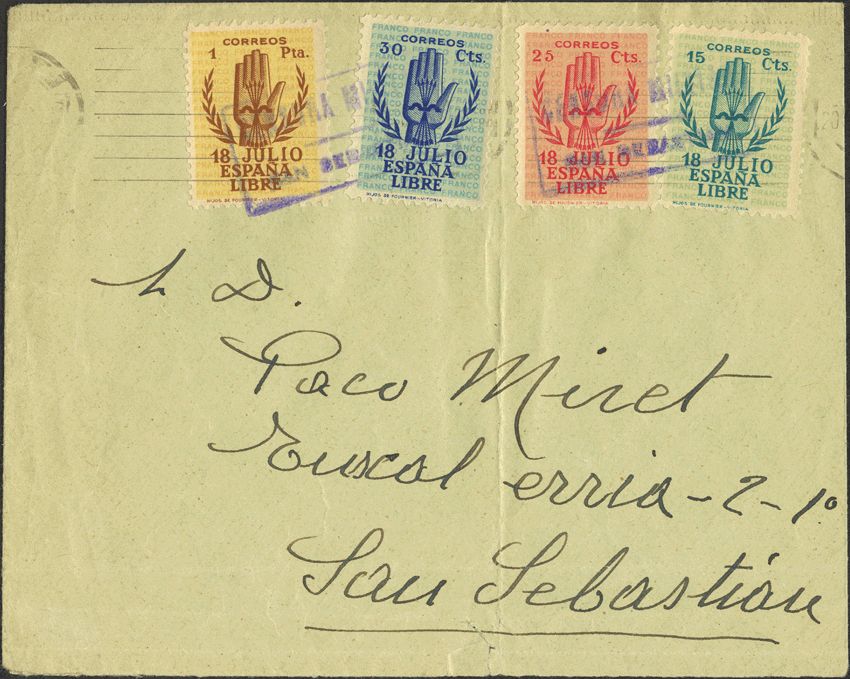 1 CORREOS Pta.
18 JULIO
ESPAÑA
LIBRE
HIJOS DE FOURNIER-VITORIA
FRANCO FRANCO FRANCO
30 CORREOS Cts.
18 JULIO
ESPAÑA
LIBRE
HIJOS DE FOURNIER-VITORIA
25 CORREOS Cts.
18 JULIO
ESPAÑA
LIBRE
HIJOS DE FOURNIER-VITORIA
15 CORREOS Cts.
18 JULIO
ESPAÑA
LIBRE
HIJOS DE FOURNIER-VITORIA
CENSURA MILITAR
SAN SEBASTIAN
D.
Paco Miret
Euscal erria-2-1º
San Sebastián